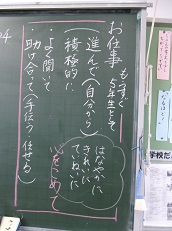 もうすぐ
5年生として
お仕事
進んで(自分から)
(積極的に
・よく聞いて
・助け合って(手伝う 任せる)
はなやかに
きれいに
ていねいに
心をこめて
学校だ